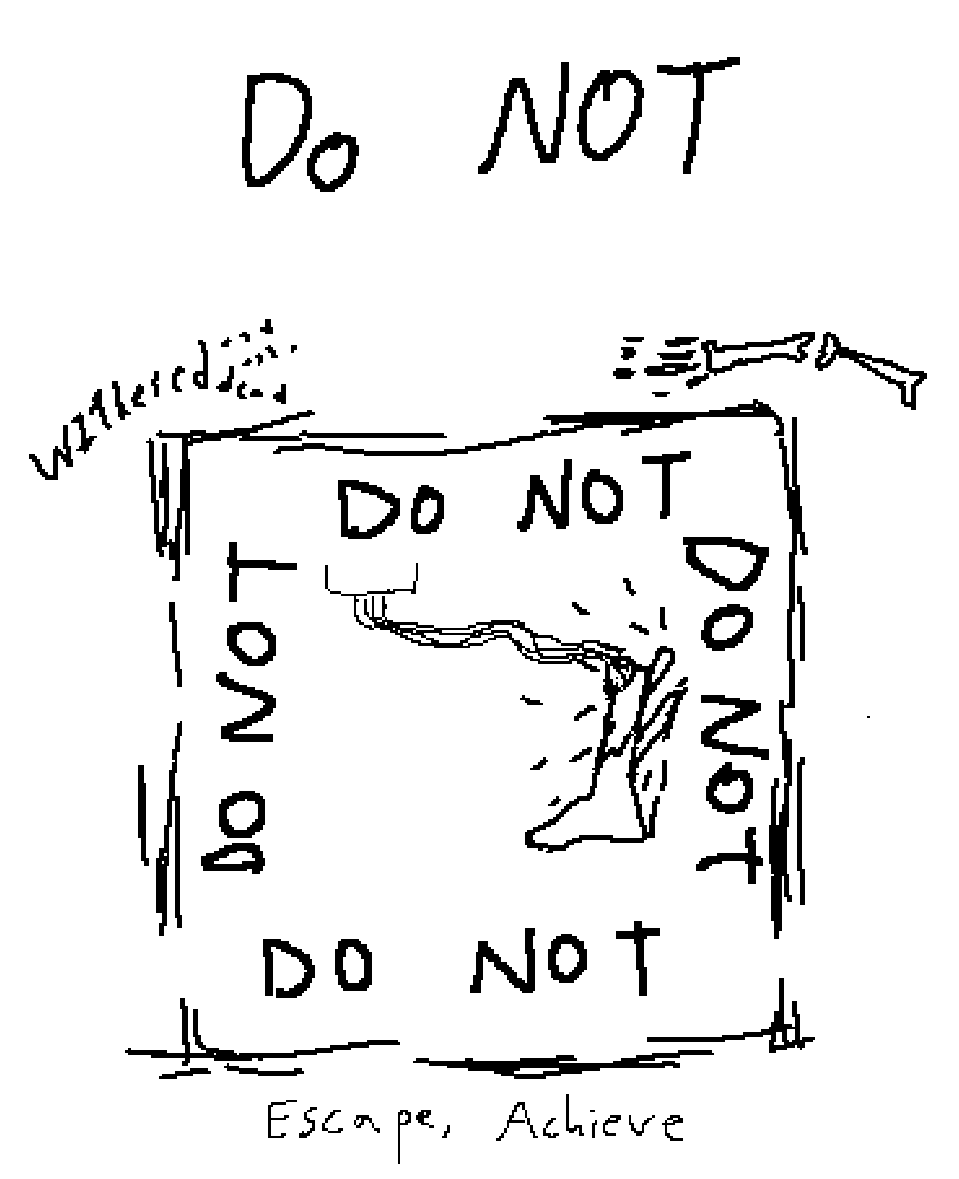 Do NOT
Withered
dead
DO NOT
DO NOT
DO NOT
DO NOT
Escape, Achieve